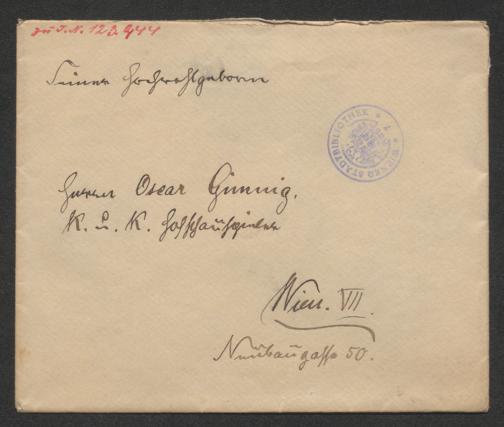 zu I.N. 123.944
Seiner Hochwohlgeboren
WIENER STADTBIBLIOTHEK
Herrn Oscar Gimnig,
K. u. K. Hofschauspieler
Wien. VII.
Neubaugasse 50.